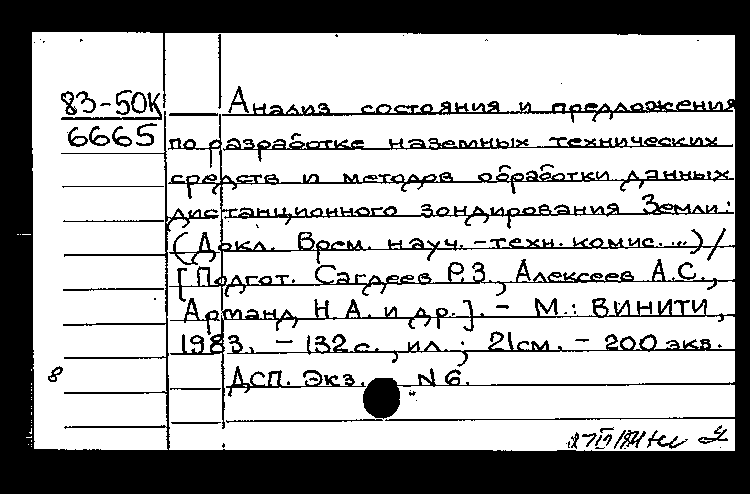 83-50К
6665
Анализ состояния и предложения
по разработке наземных технических
средств и методов обработки данных
дистанционного зондирования Земли:
(Докл. Врем. науч.-техн. комис...")/
[Подгот. Сагдеев Р.З., Алексеев А.С.,
Арманд Н.А. и др.]. - М.: ВИНИТИ,
1983. - 132 с., ил.; 21см. - 200 экз.
ДСП. Экз. N 6.
8